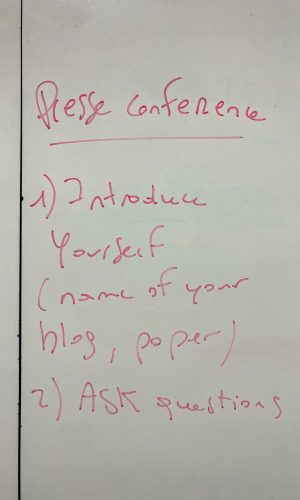 Presse conference
1) Introduce
yourself
(name of your
blog, paper)
2) ASK questions